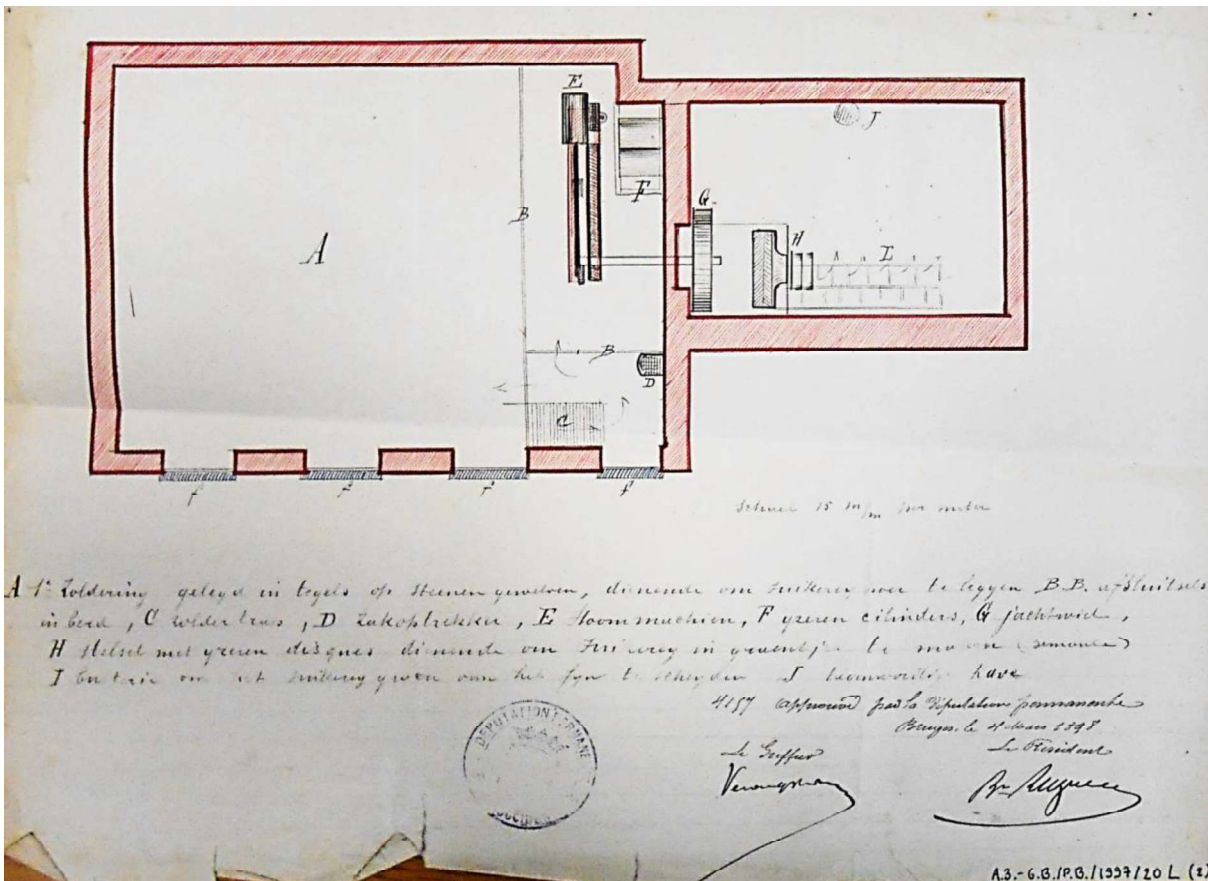 E
J
F
G
B
H
A
I
B
D
C
f f f f
Schaal 15 m/m per meter
A 1e Zoldering gelegd in tegels op steenen gewelven, dienende om suikerij over te leggen B.B. afsluitsels
in berd, C zoldertrap, D Zakoptrekker, E stoommachien, F yzeren cilinders, G jachtwiel,
H stelsel met yzeren disques dienende om suikerij in greintjes te malen (semoule)
I om suikerij van het fyn te scheyden J
4157 Approuvé par la Députation permanente
Bruges, le 4 Mars 1898
Le Greffier
Le Président
DEPUTATION PERMANE
A.3.-G.B./P.B./1997/20 L (2)